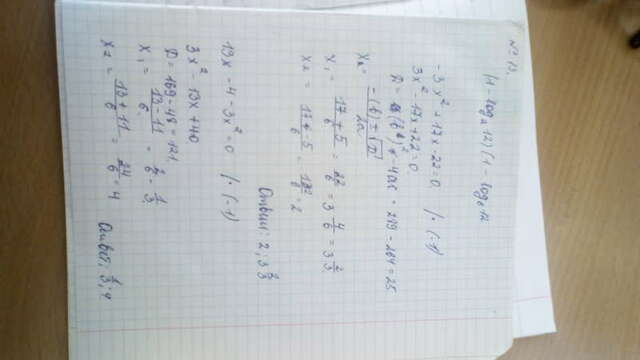 № 13.
(1 - log₂ 12)(1 - log₆ 12
-3x² + 17x - 22 = 0 / · (-1)
3x² - 17x + 22 = 0
D = (b)² - 4ac = 289 - 264 = 25
x = -(b) ± √D / 2a
x₁ = 17 + 5 / 6 = 22/6 = 3 4/6 = 3 2/3
x₂ = 17 - 5 / 6 = 12/6 = 2
Ответ: 2; 3 2/3
13x - 4 - 3x² = 0 / · (-1)
3x² - 13x + 4 0
D = 169 - 48 = 121
x₁ = 13 - 11 / 6 = 2/6 = 1/3
x₂ = 13 + 11 / 6 = 24/6 = 4
Ответ: 1/3; 4